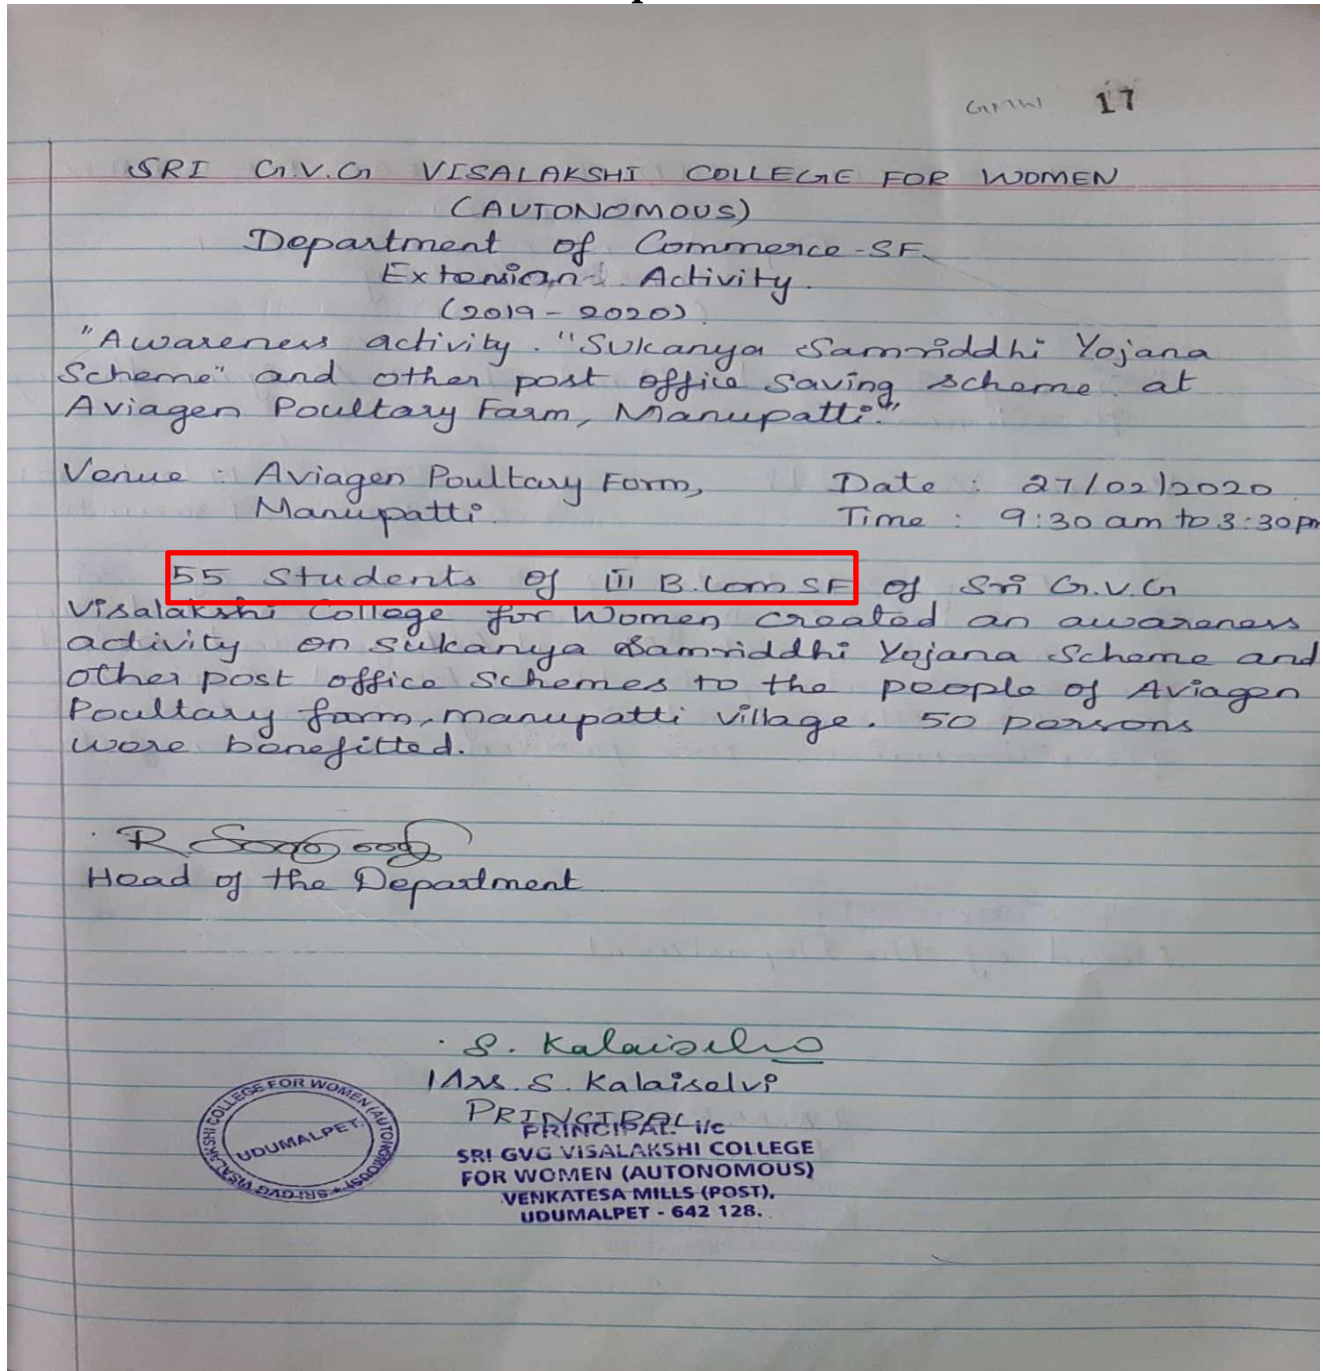 17
SRI G.V.G VISALAKSHI COLLEGE FOR WOMEN
(AUTONOMOUS)
Department of Commerce-SF
Extension Activity.
(2019-2020)
"Awareness activity. "Sukanya Samriddhi Yojana
Scheme" and other post office saving scheme at
Aviagen Poultary Farm, Manupatti."
Venue : Aviagen Poultary Form, Date : 27/02/2020
Manupatti. Time : 9:30 am to 3:30 pm
55 Students of III B.Com SF of Sri G.V.G
Visalakshi College for Women created an awareness
activity on Sukanya Samriddhi Yojana Scheme and
other post office schemes to the people of Aviagen
Poultary farm, manupatti village. 50 persons
were benefitted.
R.
Head of the Department
S. Kalaiselvi
Mrs. S. Kalaiselvi
PRINCIPAL
PRINCIPAL i/c
SRI GVG VISALAKSHI COLLEGE
FOR WOMEN (AUTONOMOUS)
VENKATESA MILLS (POST),
UDUMALPET - 642 128.
SRI GVG VISALAKSHI COLLEGE FOR WOMEN (AUTONOMOUS)
UDUMALPET.